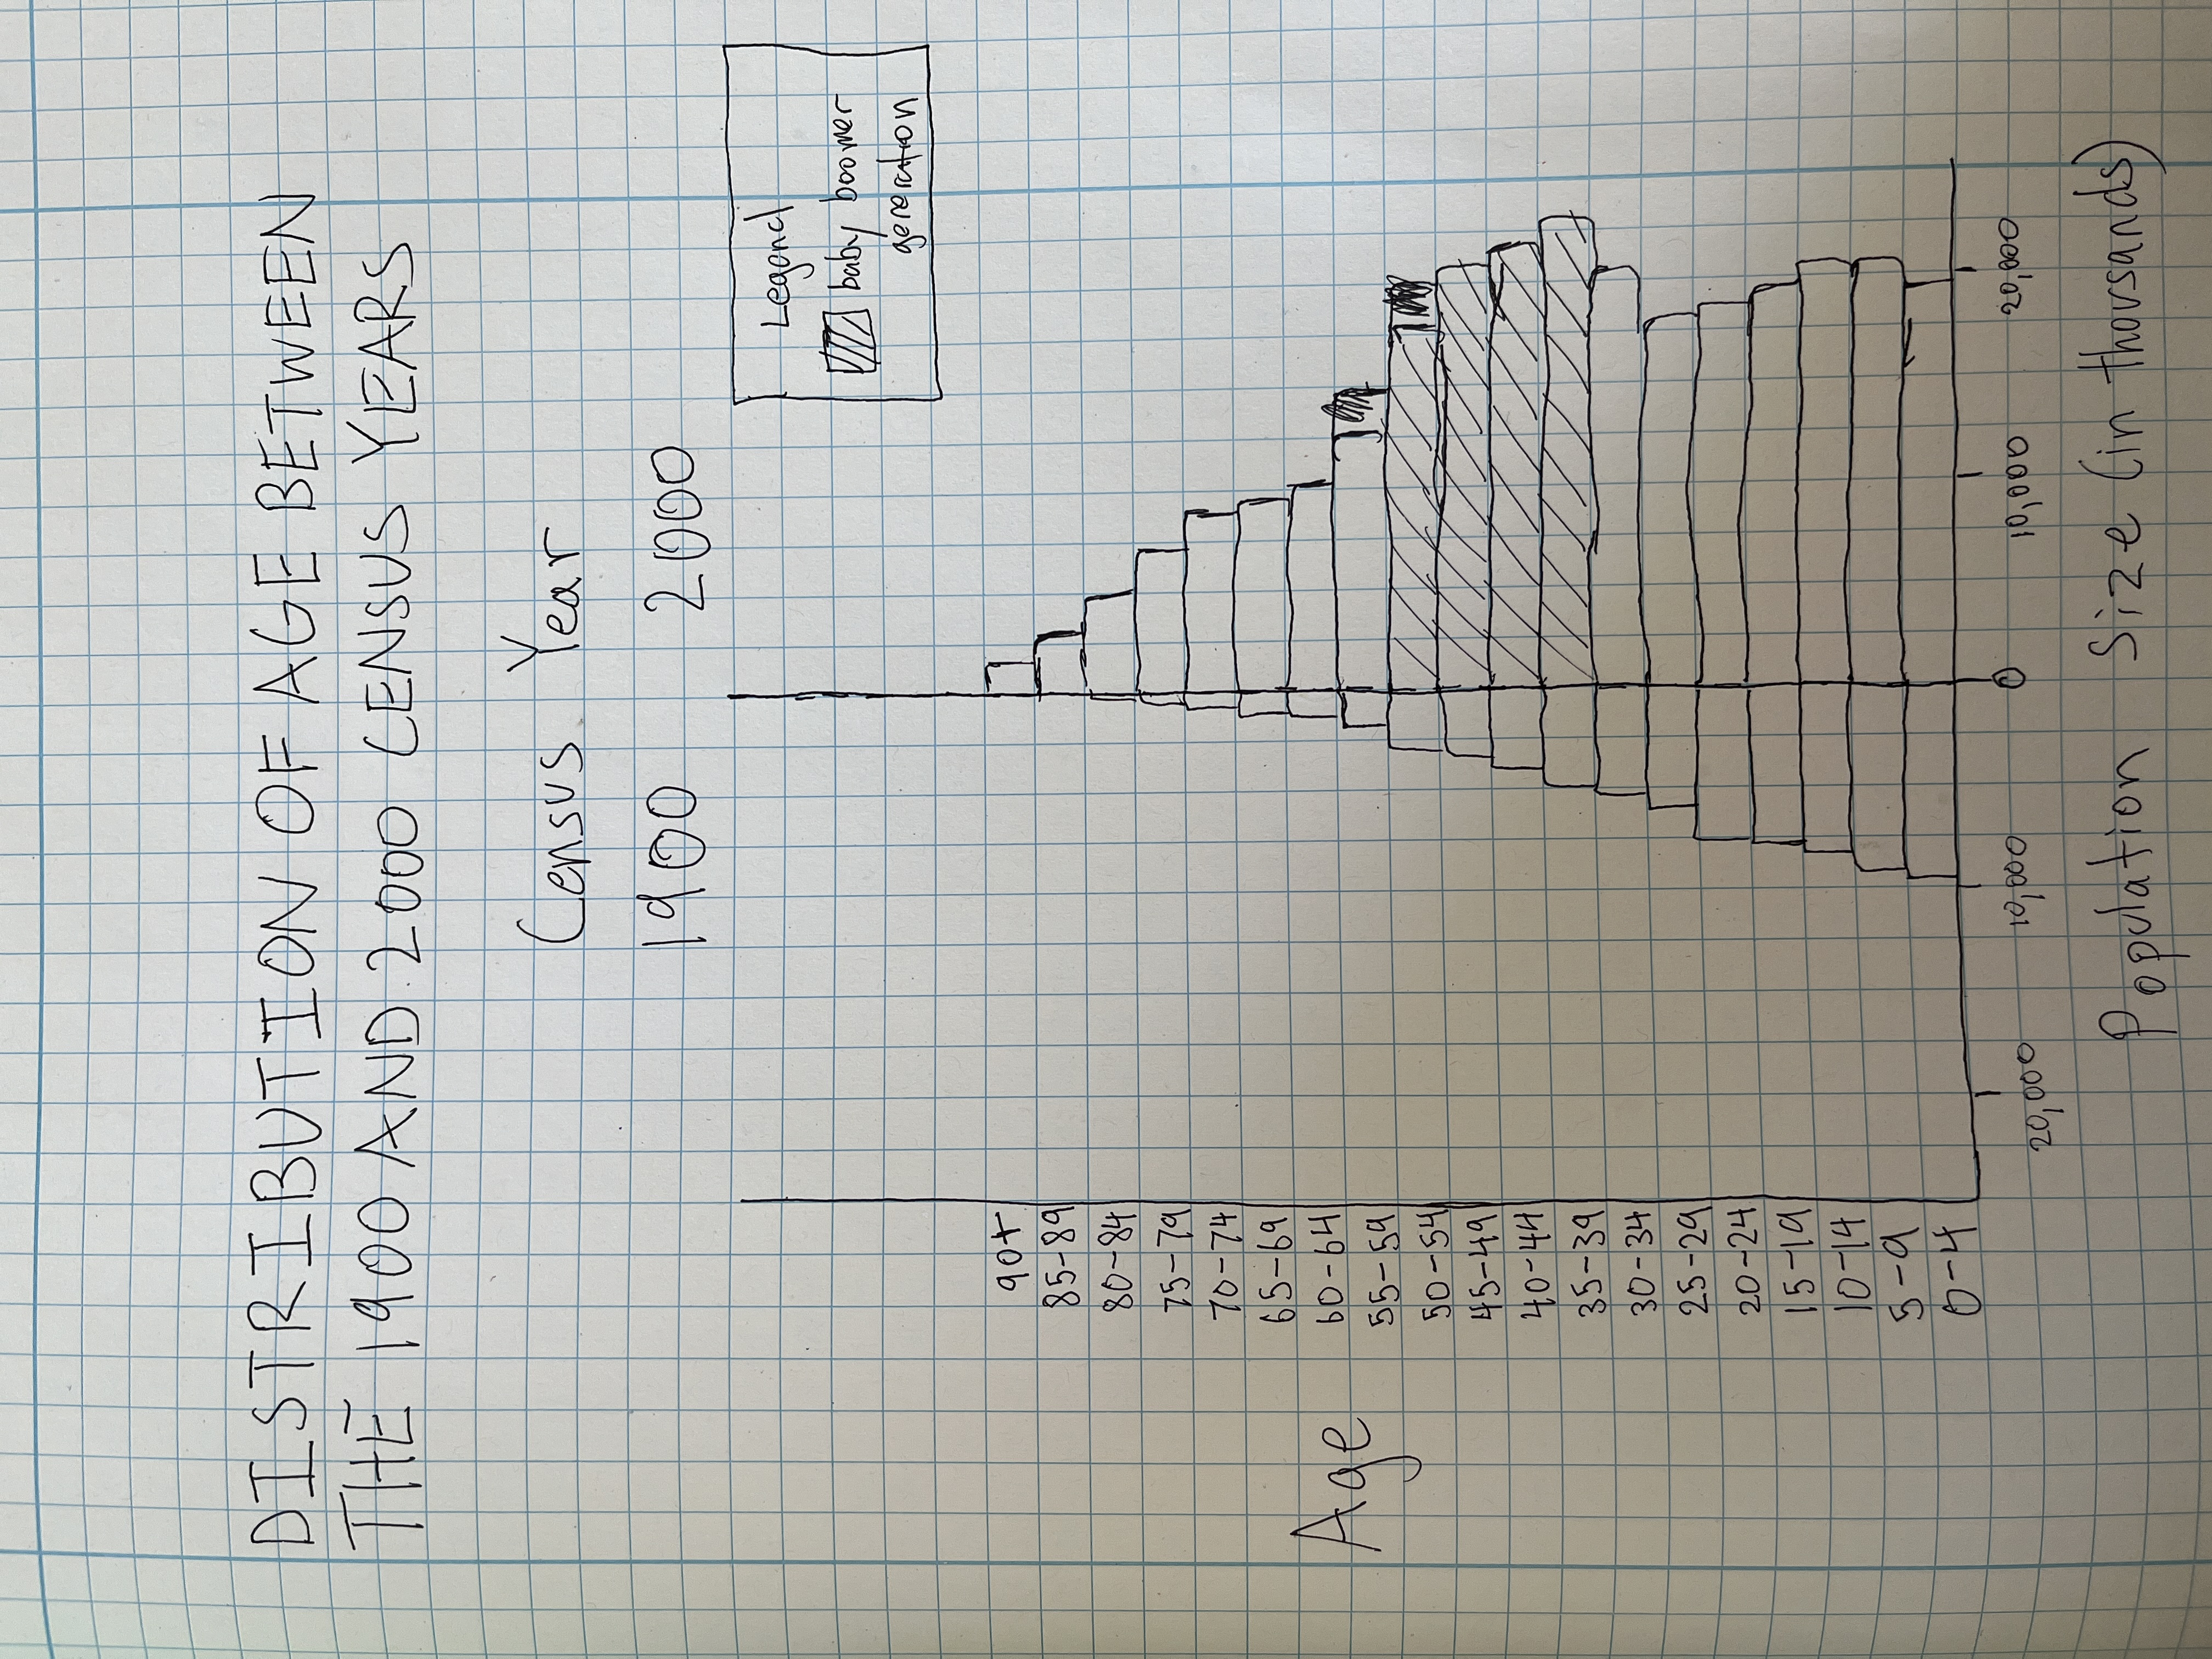 DISTRIBUTION OF AGE BETWEEN
THE 1900 AND 2000 CENSUS YEARS
Census Year
1900 2000
Legend
baby boomer
generation
Age
90+
85-89
80-84
75-79
70-74
65-69
60-64
55-59
50-54
45-49
40-44
35-39
30-34
25-29
20-24
15-19
10-14
5-9
0-4
20,000 10,000 0 10,000 20,000
Population Size (in thousands)